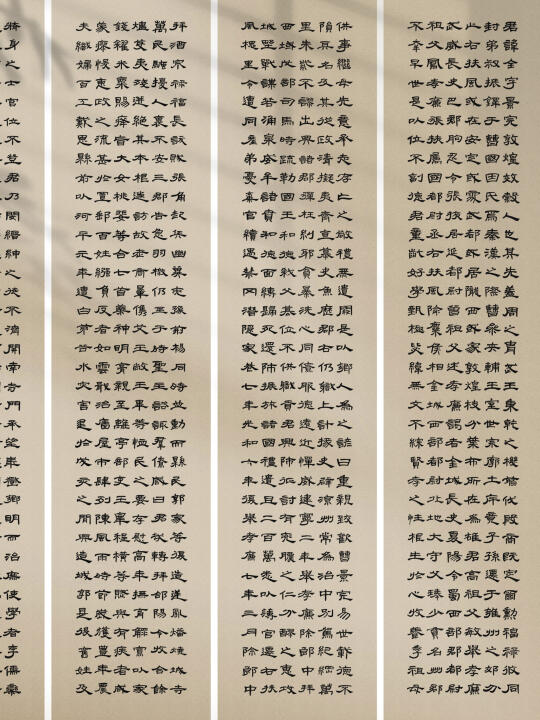 君諱全字景完敦煌效穀人也其先蓋周之胄武王秉乾之機翦伐殷商既定爾勳福祿攸同
封弟叔振鐸于曹國因氏焉秦漢之際曹參夾輔王室世宗廓土斥竟子孫遷于雍州之郊分
止右扶風或在安定或處武都或居隴西或家敦煌枝分葉布所在為雄君高祖父敏舉孝廉
武威長史巴郡朐忍令張掖居延都尉曾祖父述孝廉謁者金城長史夏陽令蜀郡西部都尉
祖父鳳孝廉張掖屬國都尉丞右扶風隃麋侯相金城西部都尉北地大守父琫少貫名州郡
不幸早世是以位不副德君童齔好學甄極毖緯無文不綜賢孝之性根生於心收養季祖母
供事繼母先意承志存亡之敬禮無遺闕是以鄉人為之諺曰重親致歡曹景完易世載德不
隕其名及其從政清擬夷齊直慕史魚歷郡右職上計掾史仍辟涼州常為治中別駕紀綱萬
里朱紫不謬出典諸郡彈枉糾邪貪暴洗心同僚服德遠近憚威建寧二年舉孝廉除郎中拜
西域戊部司馬時疏勒國王和德弒父篡位不供職貢君興師征討有兗膿之仁分醪之惠攻
城野戰謀若涌泉威牟諸賁和德面縛歸死還師振旅諸國禮遺且二百萬悉以簿官遷右扶
風槐里令遭同產弟憂棄官續遇禁冈潛隱家巷七年光和六年復舉孝廉七年三月除郎中
拜酒泉祿福長訞賊張角起兵幽冀兗豫荊楊同時並動而縣民郭家等復造逆亂燔燒城寺
萬民騷擾人裹不安三郡告急羽檄仍至于時聖主諮諏群僚咸曰君哉轉拜郃陽令收合餘
燼芟夷殘迸絕其本根遂訪故老商量儁艾王敞王畢等恤民之要存慰高年撫育鰥寡以家
錢糴米粟賜癃盲大女桃婓等合七首藥神明膏親至離亭部吏王宰程橫等賦與有疾者咸
蒙瘳悛惠政之流甚於置郵百姓繈負反者如雲戢治廧屋市肆列陳風雨時節歲獲豐年農
夫織婦百工戴恩縣前以河平元年遭白茅谷水災害退於戍亥之間興造城郭是後舊姓及
脩身之士官位不登君乃閔縉紳之徒不濟開南寺門承望華嶽鄉明而治庶使學者李儒欒